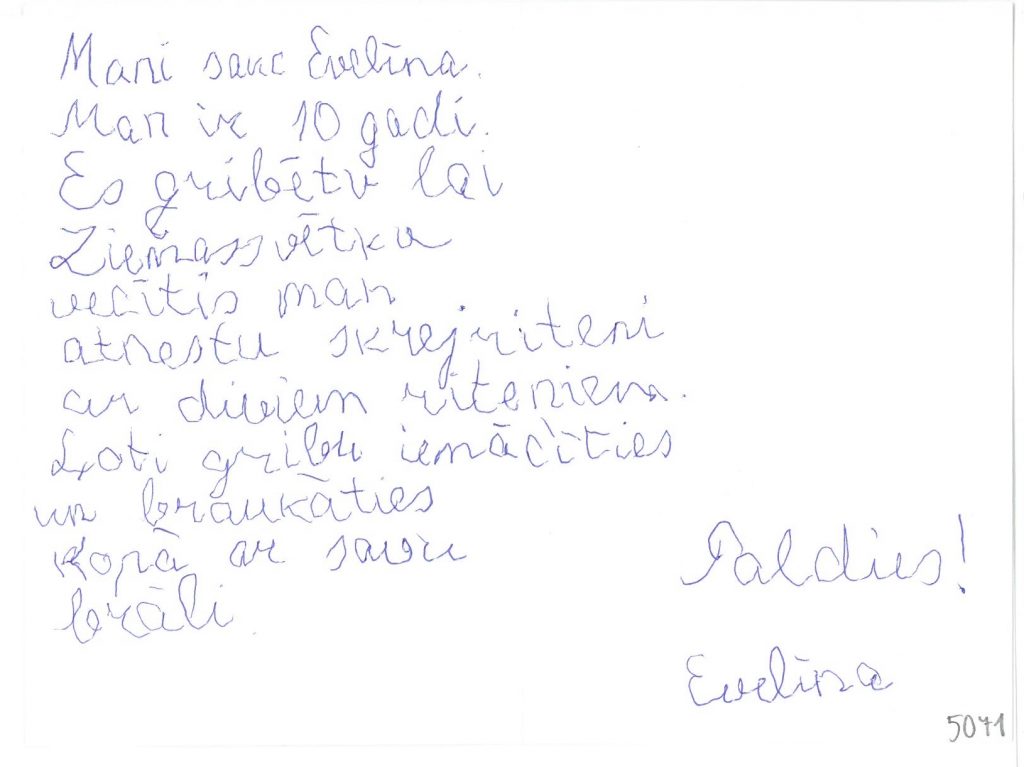 Mani sauc Evelīna.
Man ir 10 gadi.
Es gribētu lai
Ziemassvētku
vecītis man
atnestu skrejriteni
ar diviem riteņiem.
Ļoti gribu iemācīties
un braukāties
kopā ar savu
brāli.
Paldies!
Evelīna
5071